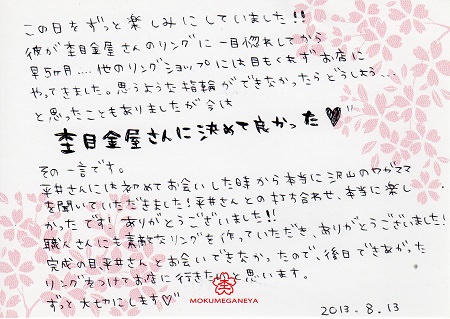 この日をずっと楽しみにしていました!!
彼が杢目金屋さんのリングに一目惚れしてから
早5ヶ月....他のリングショップには目もくれずお店に
やってきました。思うような指輪ができなかったらどうしよう...
と思ったこともありましたが今は
杢目金屋さんに決めて良かった♥"
その一言です。
平井さんには初めてお会いした時から本当に沢山のワガママ
を聞いていただきました!平井さんとの打ち合わせ、本当に楽し
かったです!ありがとうございました!!
職人さんにも素敵なリングを作っていただき、ありがとうございました!
完成の日、平井さんとお会いできなかったので、後日できあがった
リングをつけてお店に行きたいと思います。
ずっと大切にします♡"
MOKUMEGANEYA
2013.8.13